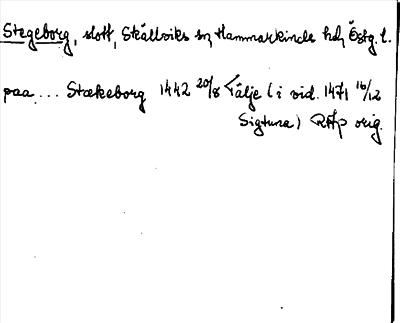 Stegeborg, slott, Skällviks sn, Hammarkinds hd, Östg. l.
paa ... Stækeborg 1442 20/8 Tälje (i vid. 1471 16/12
Sigtuna) RAp orig.